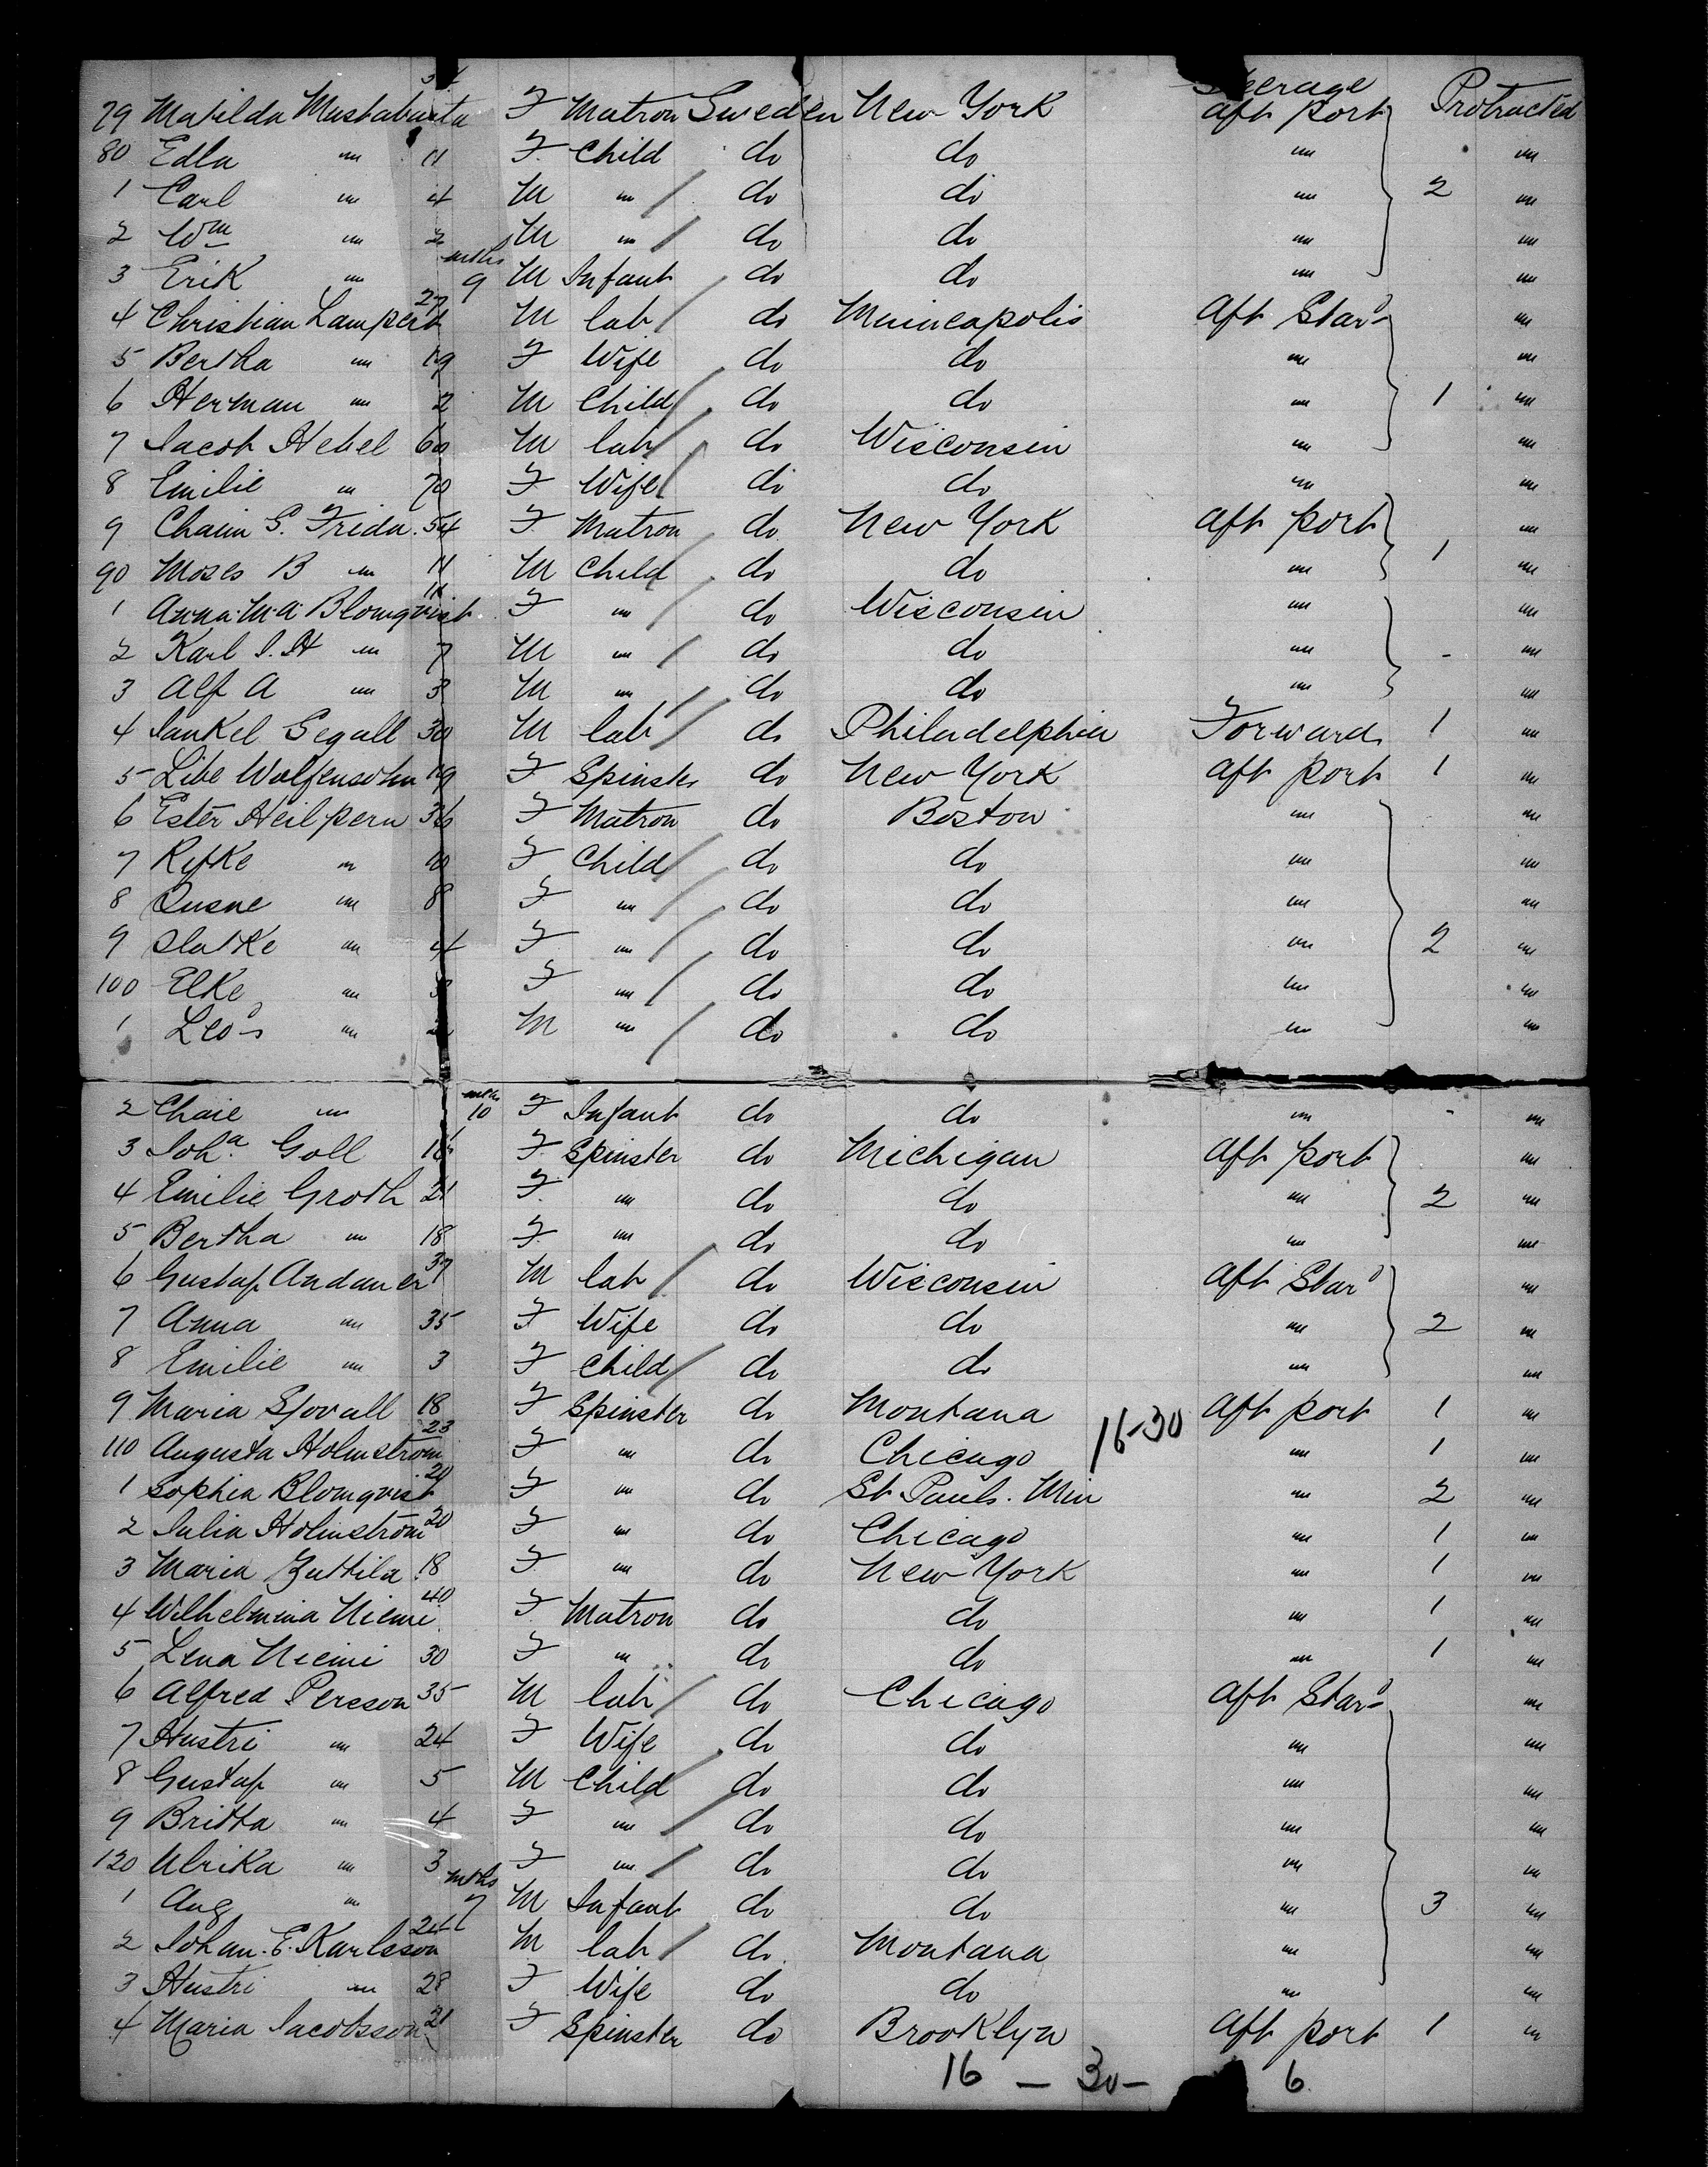 Steerage
79 Matilda Mustabacta 34 F Matron Sweden New York Aft port Protracted
80 Edla " 11 F Child do do " "
1 Carl " 4 M " do do " 2 "
2 Wm " 2 M " do do " "
3 Erik " mths 9 M Infant do do " "
4 Christian Lampert 27 M lab do Minneapolis Aft Stard "
5 Bertha " 19 F Wife do do " "
6 Herman " 2 M Child do do " 1 "
7 Jacob Hebel 60 M lab do Wisconsin " "
8 Emilie " 70 F Wife do do " "
9 Chaim G. Frida 54 F Matron do New York Aft port "
90 Moses B " 11 M Child do do " 1 "
1 Anna M.a. Blomqvist 11 F " do Wisconsin " "
2 Karl I. H " 7 M " do do " - "
3 Alf A " 3 M " do do " "
4 Jankel Segall 30 M lab do Philadelphia Forward 1 "
5 Libe Wolfensohn 19 F Spinster do New York Aft port 1 "
6 Ester Heilpern 36 F Matron do Boston " "
7 Rifke " 10 F Child do do " "
8 " 8 F " do do " "
9 Slatke " 4 F " do do " 2 "
100 Elke " 3 F " do do " "
1 " 2 M " do do " "
2 Chaie " mths 10 F Infant do do " - "
3 Joha. Goll 18 F Spinster do Michigan Aft port "
4 Emilie Groth 21 F " do do " 2 "
5 Bertha " 18 F " do do " "
6 Gustaf Andaner 37 M lab do Wisconsin Aft Stard "
7 Anna " 35 F Wife do do " 2 "
8 Emilie " 3 F Child do do " "
9 Maria Sjovall 18 F Spinster do Montana 16-30 Aft port 1 "
110 Augusta Holmstrom 23 F " do Chicago " 1 "
1 Sophia Blomqvist 20 F " do St Pauls. Min " 2 "
2 Julia Holmstrom 20 F " do Chicago " 1 "
3 Maria 18 F " do New York " 1 "
4 Wilhelmina Niemi 40 F Matron do do " 1 "
5 Lena Niemi 30 F " do do " 1 "
6 Alfred Persson 35 M lab do Chicago Aft Stard "
7 Hustri " 24 F Wife do do " "
8 Gustaf " 5 M Child do do " "
9 Britta " 4 F " do do " "
120 Ulrika " 3 F " do do " "
1 Aug " mths 7 M Infant do do " 3 "
2 Johan. E. Karlsson 24 M lab do Montana " "
3 Hustri " 28 F Wife do do " "
4 Maria Jacobsson 21 F Spinster do Brooklyn Aft port 1 "
16 - 30 - 6